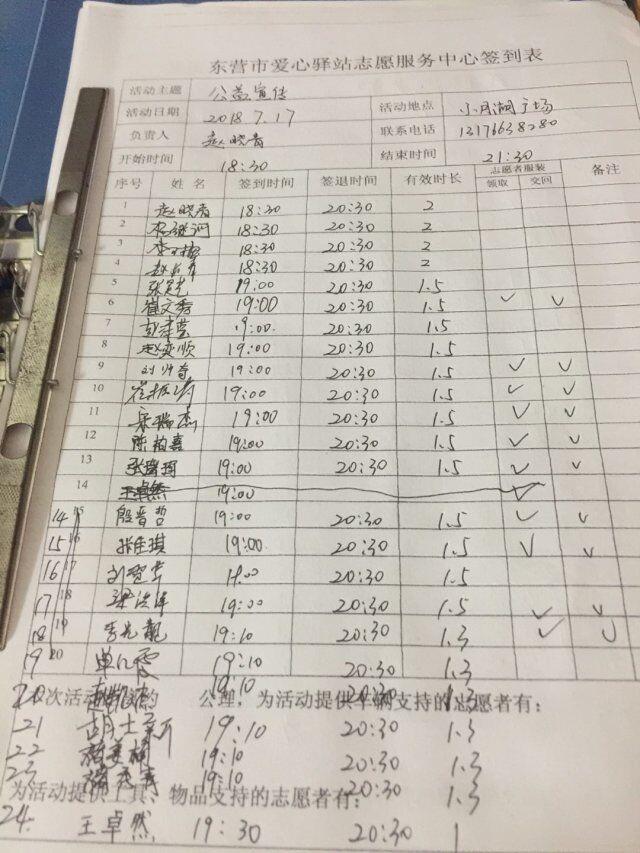 东营市爱心驿站志愿服务中心签到表
活动主题 公益宣传
活动日期 2018.7.17 活动地点 小月湖广场
负责人 赵晓春 联系电话 13176638280
开始时间 18:30 结束时间 21:30
序号 姓名 签到时间 签退时间 有效时长 志愿者服装 备注
领取 交回
1 赵晓春 18:30 20:30 2
2 18:30 20:30 2
3 18:30 20:30 2
4 18:30 20:30 2
5 19:00 20:30 1.5
6 崔文秀 19:00 20:30 1.5 ✓ ✓
7 19:00 20:30 1.5
8 赵奕顺 19:00 20:30 1.5
9 19:00 20:30 1.5 ✓ ✓
10 19:00 20:30 1.5 ✓ ✓
11 宋瑞杰 19:00 20:30 1.5 ✓ ✓
12 陈柏熹 19:00 20:30 1.5 ✓ ✓
13 19:00 20:30 1.5 ✓ ✓
14 王卓然 19:00 ✓
14 15 殷晋哲 19:00 20:30 1.5 ✓ ✓
15 16 张佳琪 19:00 20:30 1.5 ✓ ✓
16 17 19:00 20:30 1.5
17 18 19:00 20:30 1.5 ✓ ✓
18 19 19:10 20:30 1.3 ✓ ✓
19 20 单亿霞 19:10 20:30 1.3
20 19:10 20:30 1.3
次活动 公理，为活动提供车辆支持的志愿者有：
21 19:10 20:30 1.3
22 19:10 20:30 1.3
23 19:10 20:30 1.3
为活动提供工具、物品支持的志愿者有：
24. 王卓然 19:30 20:30 1